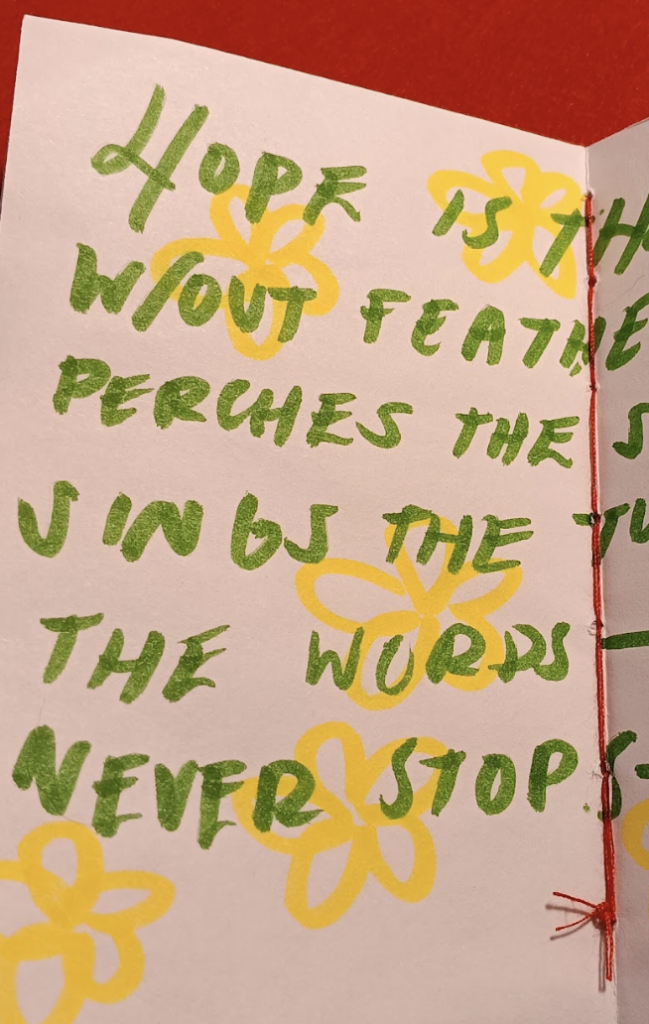 HOPE IS TH
W/OUT FEATHE
PERCHES THE S
SINGS THE TU
THE WORDS —
NEVER STOPS -